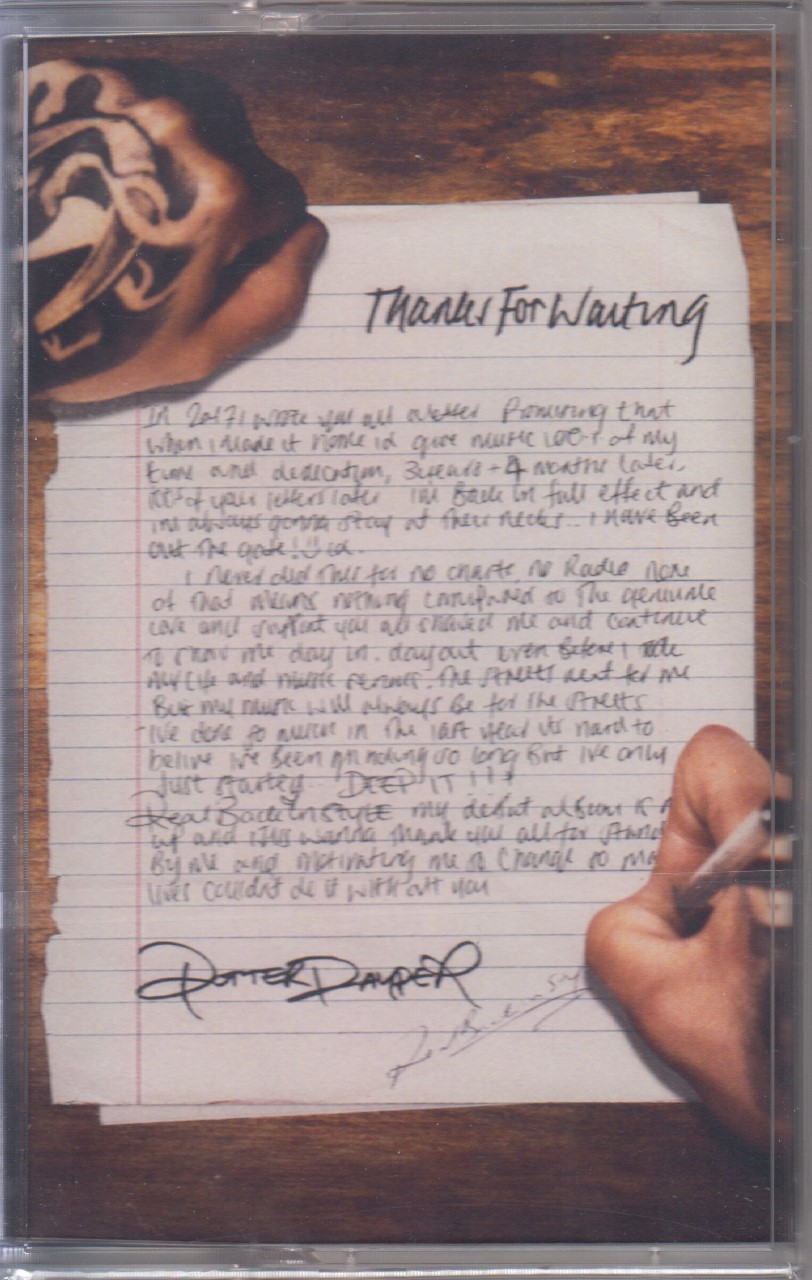 Thanks For Waiting
In 2017 i wrote you all a letter Promising that
when i made it home id give music 100% of my
time and dedication, 3years + 4 months later,
100s of your letters later im Back in full effect and
im always gonna stay at their necks.. i have Been
out the gate!
i never did this for no charts, no Radio none
of that means nothing compared to the genuine
love and support you all showed me and continue
to show me day in. day out even Before i
my life and music. The streets next for me
But my music will always Be for the streets
ive done so much in the last year its hard to
belive ive been grinding so long But ive only
just started DEEP IT !!!
Real Back In Style my debut album is
up and i Just wanna thank you all for
By me and motivating me to Change so
lives couldnt do it without you
POTTER PAYPER
Real Back In Style